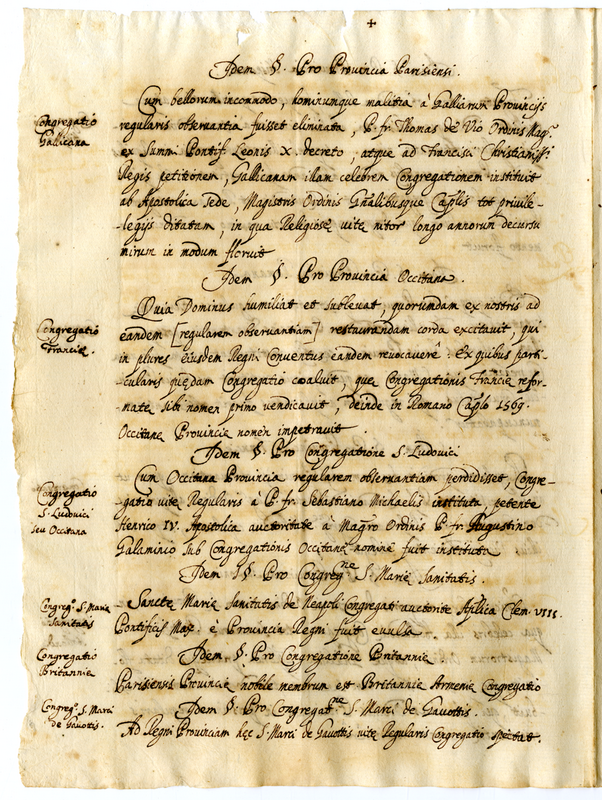 +
Idem §. Pro Provincia Parisiensi.
Cum bellorum incommodo, hominumque malitia à Galliarum Provincijs
Congregatio
Gallicana
regularis observantia fuisset eliminata, P. fr. Thomas de Vio Ordinis Magr.
ex Summi Pontif. Leonis X. decreto, atque ad Francisci Christianissi.
Regis petitionem, Gallicanam illam celebrem Congregationem instituit
ab Apostolica Sede, Magistris Ordinis Gn̄alibusque Cap̄lis tot privile-
-legijs ditatam, in qua Religiosę vitę nitor longo annorum decursu
mirum in modum floruit
Idem §. Pro Provincia Occitana.
Quia Dominus humiliat et sublevat, quorumdam ex nostris ad
Congregatio
Francię.
eandem [regularem observantiam] restaurandam corda excitavit, qui
in plures eiusdem Regni Conventus eandem revocaverê. Ex quibus parti-
-cularis quędam Congregatio coaluit, quę Congregationis Francię refor-
-matę sibi nomen primo vendicavit, deinde in Romano Cap̄lo 1569.
Occitanę Provincię nomen impetravit.
Idem §. Pro Congregatione S. Ludovici
Cum Occitana Provincia regularem observantiam perdidisset, Congre-
Congregatio
S. Ludovici
seu Occitana
-gatio vitę Regularis à P. fr. Sebastiano Michaelis instituta, petente
Henrico IV. Apostolica auctoritate à Magro Ordinis P. fr. Augustino
Galaminio sub Congregationis Occitanę nomine fuit instituta
Idem §. Pro Congregne S. Marię Sanitatis.
Congreg°. S. Marię
Sanitatis
Sanctę Marię Sanitatis de Neapoli Congregat auctorite Apllica Clem. VIII.
Pontificis Max. è Provincia Regni fuit evulsa
Congregatio
Britannię
Idem §. Pro Congregatione Britannię
Parisiensis Provincię nobile membrum est Britannię Armenię Congregatio
Congreg°. S. Marci
de Gavottis.
Idem §. Pro Congregatne S. Marci de Gavottis.
Ad Regni Provinciam hęc S. Marci de Gavottis vitę Regularis Congregatio spectat.